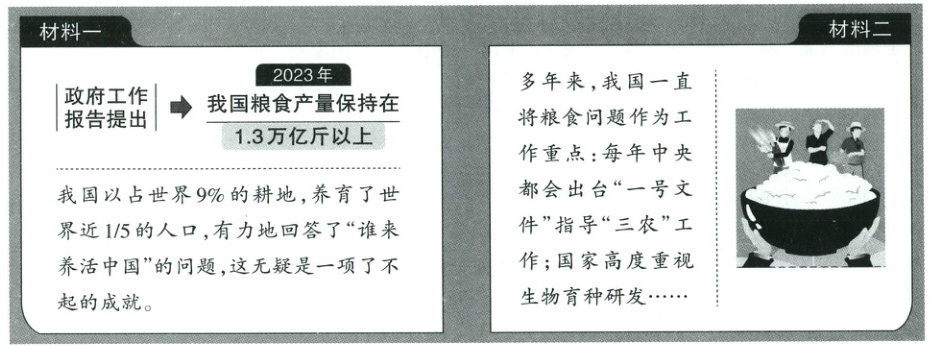 材料一
政府工作
报告提出
2023年
我国粮食产量保持在
1.3万亿斤以上
我国以占世界9%的耕地,养育了世
界近1/5的人口,有力地回答了“谁来
养活中国”的问题,这无疑是一项了不
起的成就。
材料二
多年来,我国一直
将粮食问题作为工
作重点:每年中央
都会出台“一号文
件”指导“三农”工
作;国家高度重视
生物育种研发……